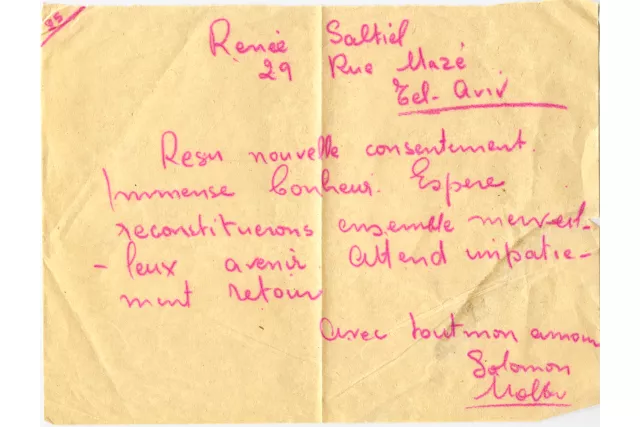 85
Renée Saltiél
29 Rue Mazé
Tel-Aviv
Resu nouvelle consentement.
Immense bonheur. Espere
reconstituerons ensemble merveil-
- leux avenir Attend impatie-
ment retour
avec tout mon amour
Solomon